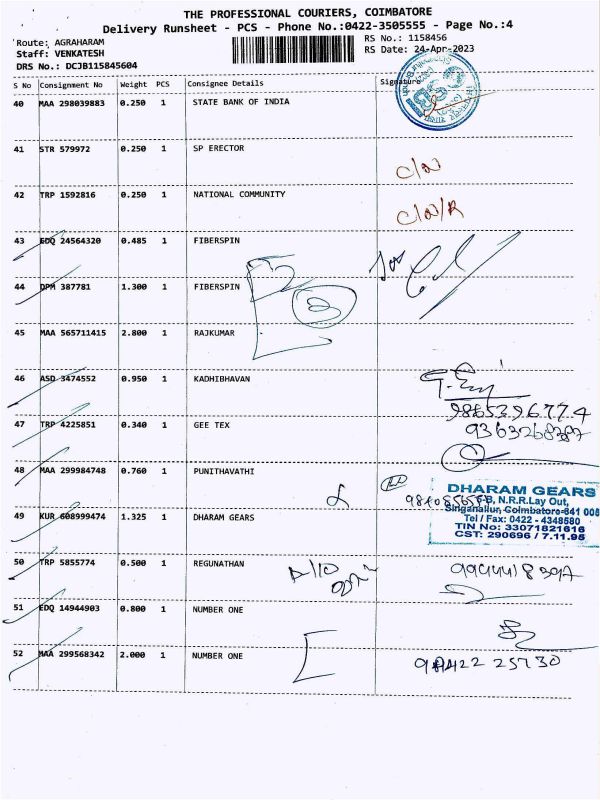 THE PROFESSIONAL COURIERS, COIMBATORE
Delivery Runsheet - PCS - Phone No.:0422-3505555 - Page No.:4
Route: AGRAHARAM RS No.: 1158456
Staff: VENKATESH RS Date: 24-Apr-2023
DRS No.: DCJB115845604
S No Consignment No Weight PCS Consignee Details Signature
40 MAA 298039883 0.250 1 STATE BANK OF INDIA
41 STR 579972 0.250 1 SP ERECTOR
C/N
42 TRP 1592816 0.250 1 NATIONAL COMMUNITY
C/N/R
43 EDQ 24564320 0.485 1 FIBERSPIN
44 DPM 387781 1.300 1 FIBERSPIN
3
45 MAA 565711415 2.800 1 RAJKUMAR
46 ASD 3474552 0.950 1 KADHIBHAVAN
9865396774
47 TRP 4225851 0.340 1 GEE TEX
9363268387
48 MAA 299984748 0.760 1 PUNITHAVATHI
DHARAM GEARS
N.R.R.Lay Out,
49 KUR 608999474 1.325 1 DHARAM GEARS
Singanallur, Coimbatore-641 005
Tel / Fax: 0422 - 4348580
TIN No: 33071821616
CST: 290696 / 7.11.95
50 TRP 5855774 0.500 1 REGUNATHAN
51 EDQ 14944903 0.800 1 NUMBER ONE
52 MAA 299568342 2.000 1 NUMBER ONE
98422 25730